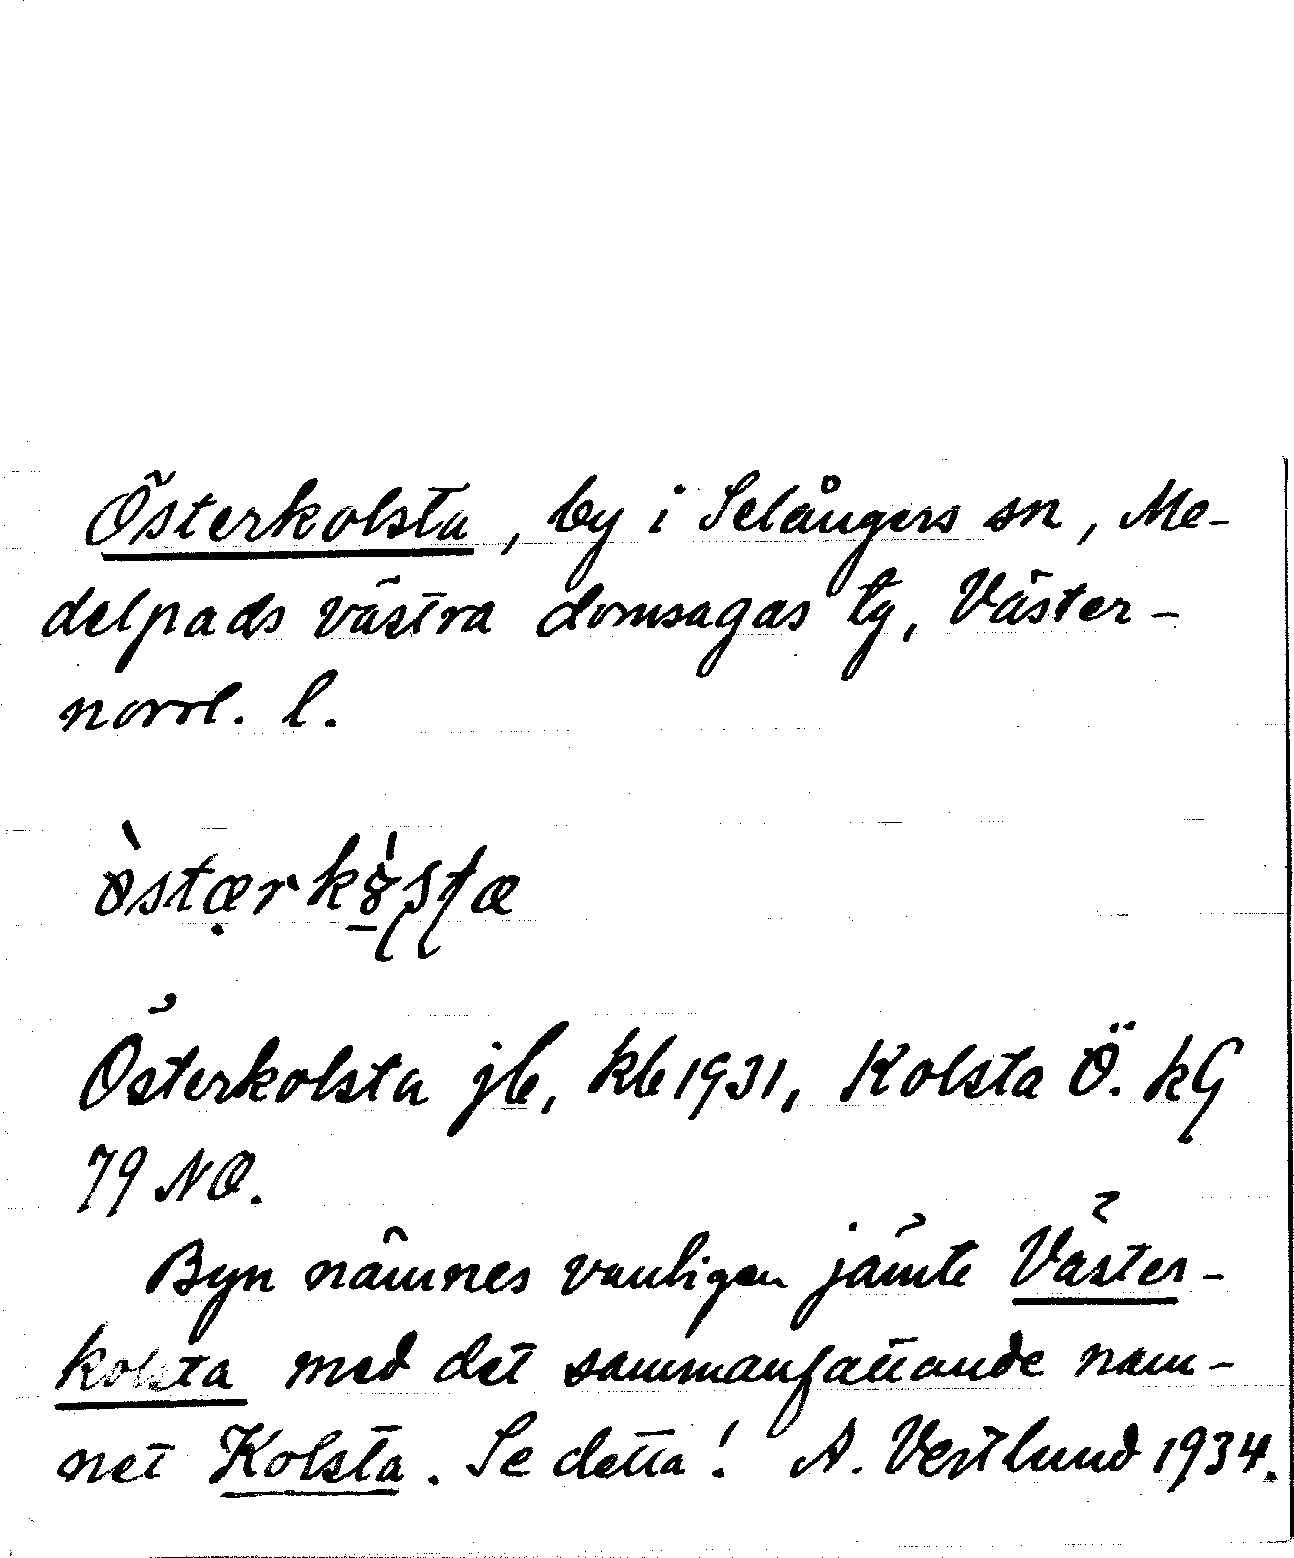 Österkolsta, by i Selångers sn, Me-
delpads västra domsagas tg, Väster-
norrl. l.
Österkolsta jb, kb 1931, Kolsta Ö. kG
79 NO.
Byn nämnes vanligen jämte Väster-
kolsta med det sammanfattande nam-
net Kolsta. Se detta! A. Vestlund 1934.